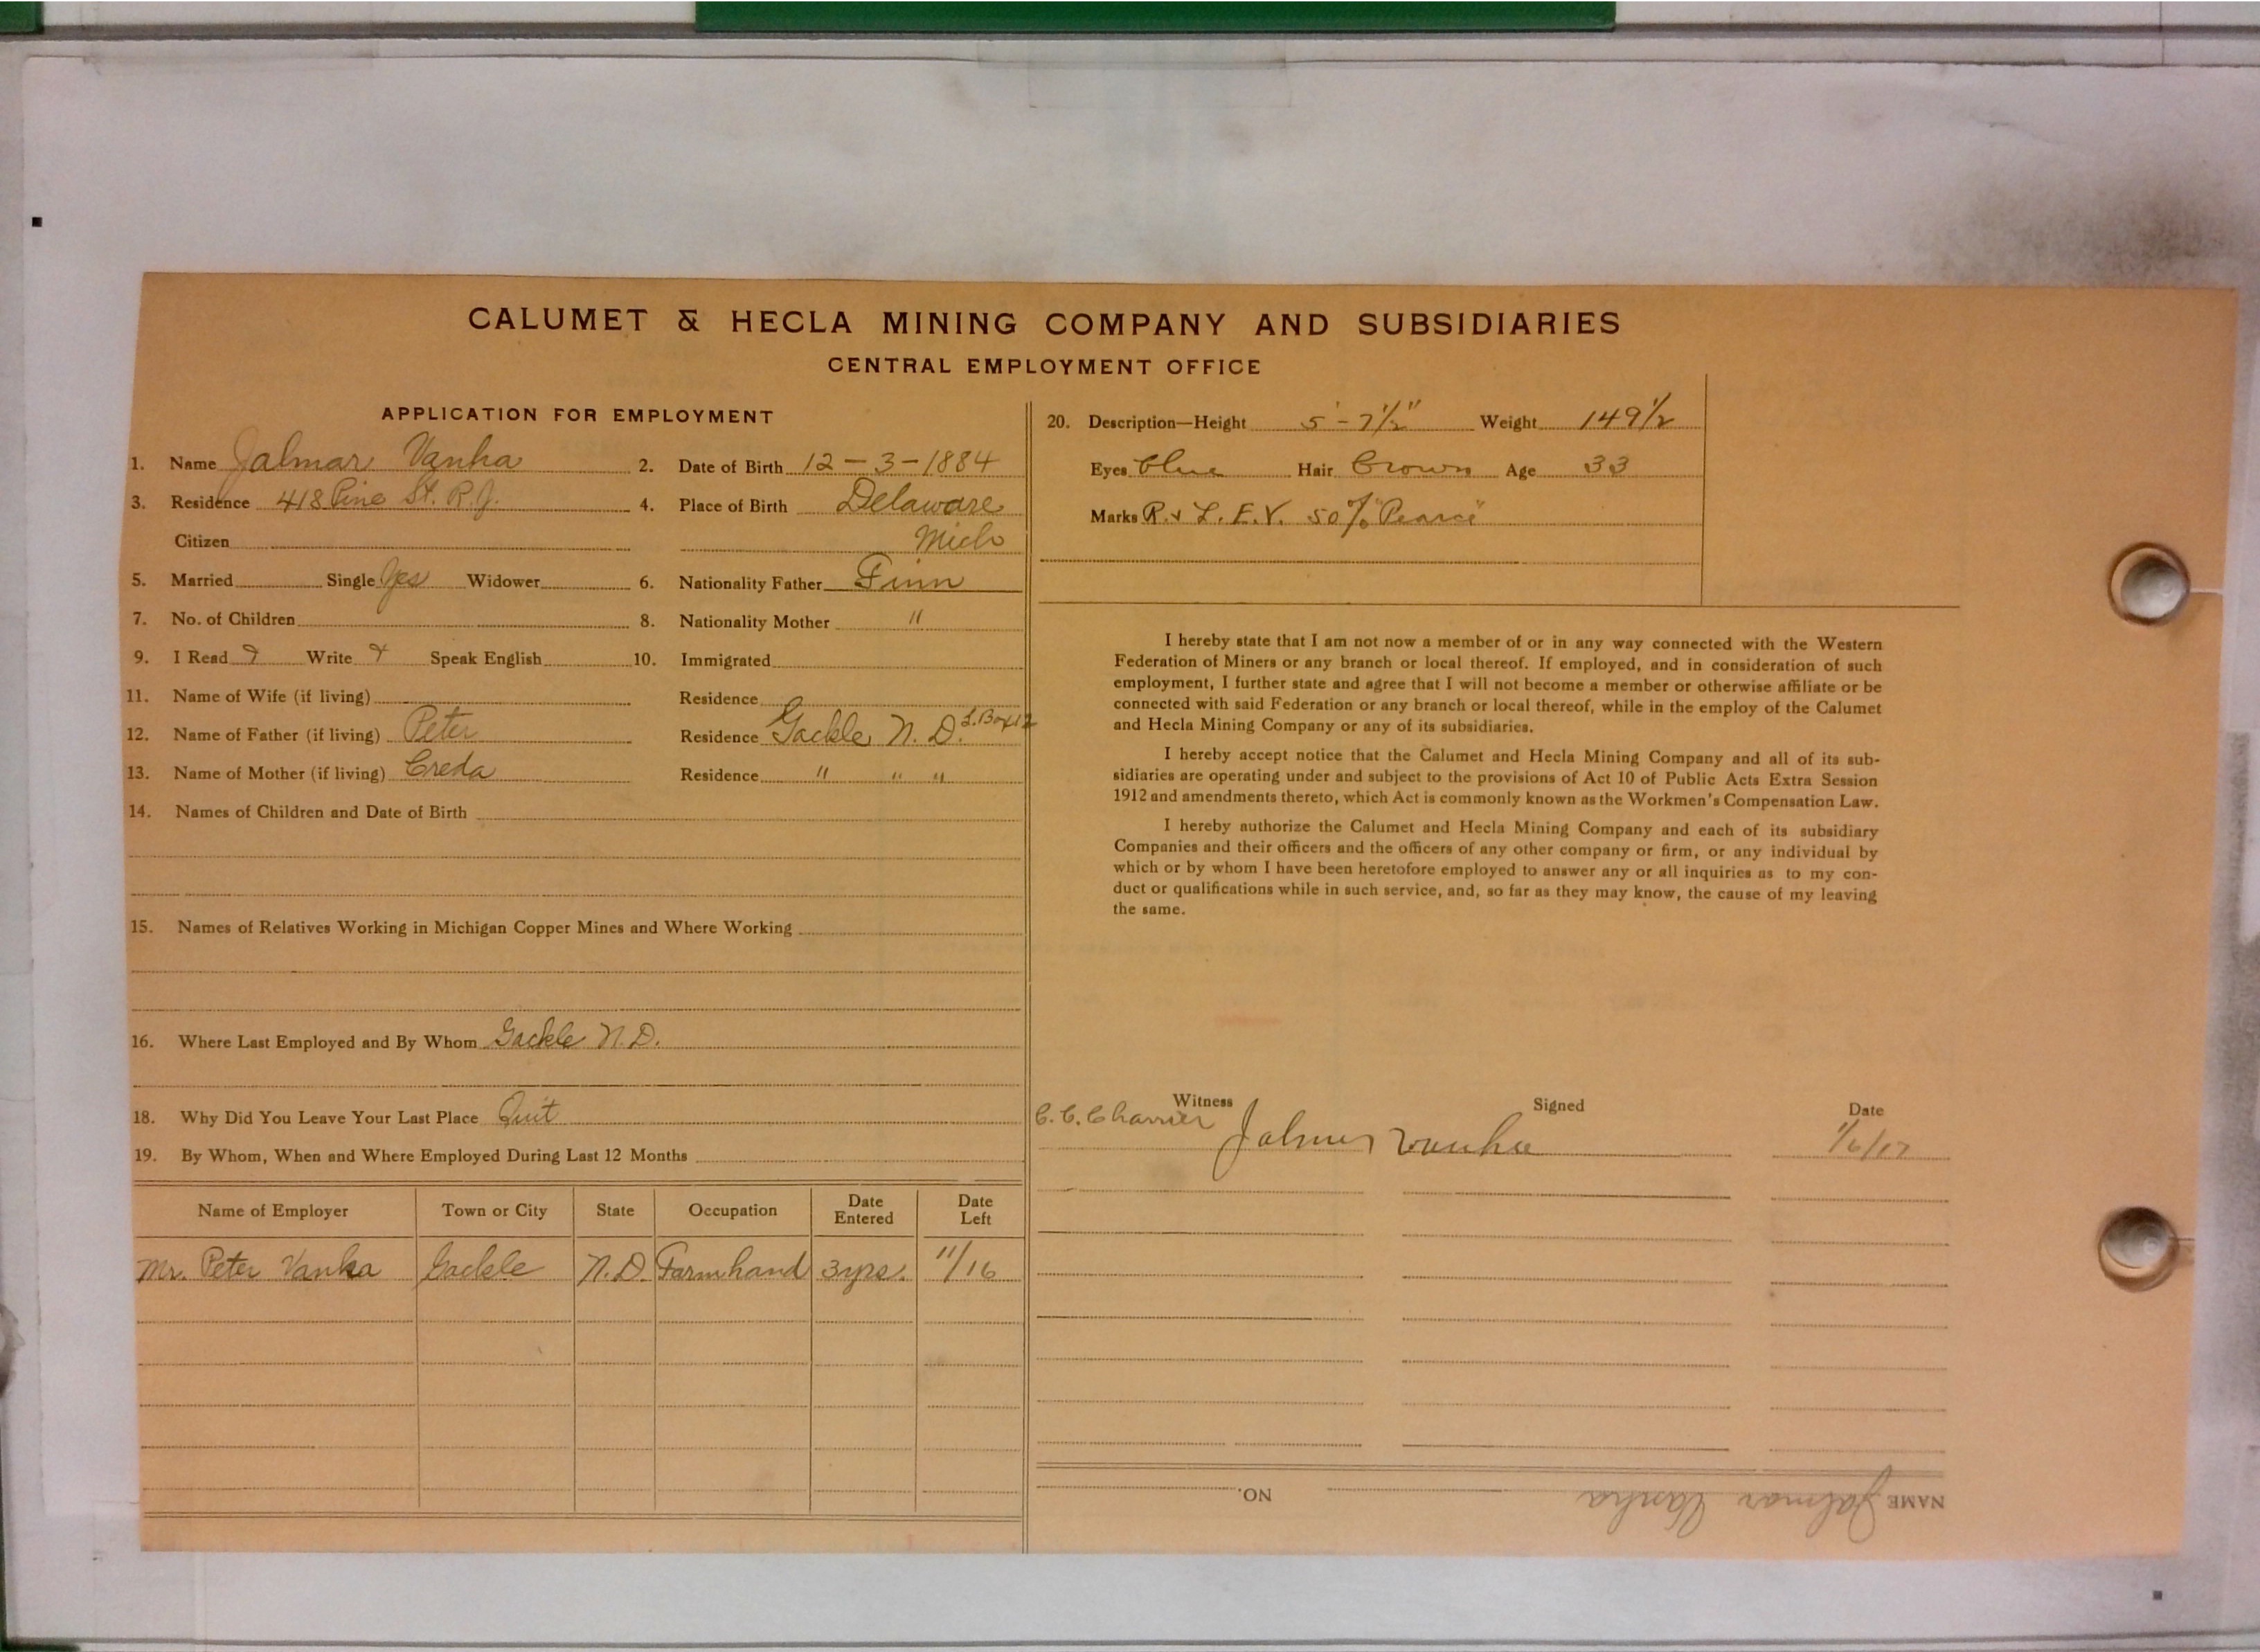 CALUMET & HECLA MINING COMPANY AND SUBSIDIARIES
CENTRAL EMPLOYMENT OFFICE
APPLICATION FOR EMPLOYMENT
1. Name Jalmar Vanha 2. Date of Birth 12-3-1884
3. Residence 418 Pine St. R.J. 4. Place of Birth Delaware
Citizen Mich
5. Married Single Yes Widower 6. Nationality Father Finn
7. No. of Children 8. Nationality Mother "
9. I Read Write Speak English 10. Immigrated
11. Name of Wife (if living) Residence
12. Name of Father (if living) Peter Residence Gackle N. D. L. Box 12
13. Name of Mother (if living) Creda Residence " " "
14. Names of Children and Date of Birth
15. Names of Relatives Working in Michigan Copper Mines and Where Working
16. Where Last Employed and By Whom Gackle N.D.
18. Why Did You Leave Your Last Place Quit
19. By Whom, When and Where Employed During Last 12 Months
Name of Employer Town or City State Occupation Date Entered Date Left
Mr. Peter Vanha Gackle N.D. Farmhand 3 yrs. 11/16
20. Description—Height 5'-7½" Weight 149½
Eyes blue Hair Brown Age 33
Marks R. & L. E.V. 50% "Pearce"
I hereby state that I am not now a member of or in any way connected with the Western
Federation of Miners or any branch or local thereof. If employed, and in consideration of such
employment, I further state and agree that I will not become a member or otherwise affiliate or be
connected with said Federation or any branch or local thereof, while in the employ of the Calumet
and Hecla Mining Company or any of its subsidiaries.
I hereby accept notice that the Calumet and Hecla Mining Company and all of its sub-
sidiaries are operating under and subject to the provisions of Act 10 of Public Acts Extra Session
1912 and amendments thereto, which Act is commonly known as the Workmen's Compensation Law.
I hereby authorize the Calumet and Hecla Mining Company and each of its subsidiary
Companies and their officers and the officers of any other company or firm, or any individual by
which or by whom I have been heretofore employed to answer any or all inquiries as to my con-
duct or qualifications while in such service, and, so far as they may know, the cause of my leaving
the same.
Witness Signed Date
C. C. Charrier Jalmer Vanha 1/6/17
NAME Jalmar Vanha NO.